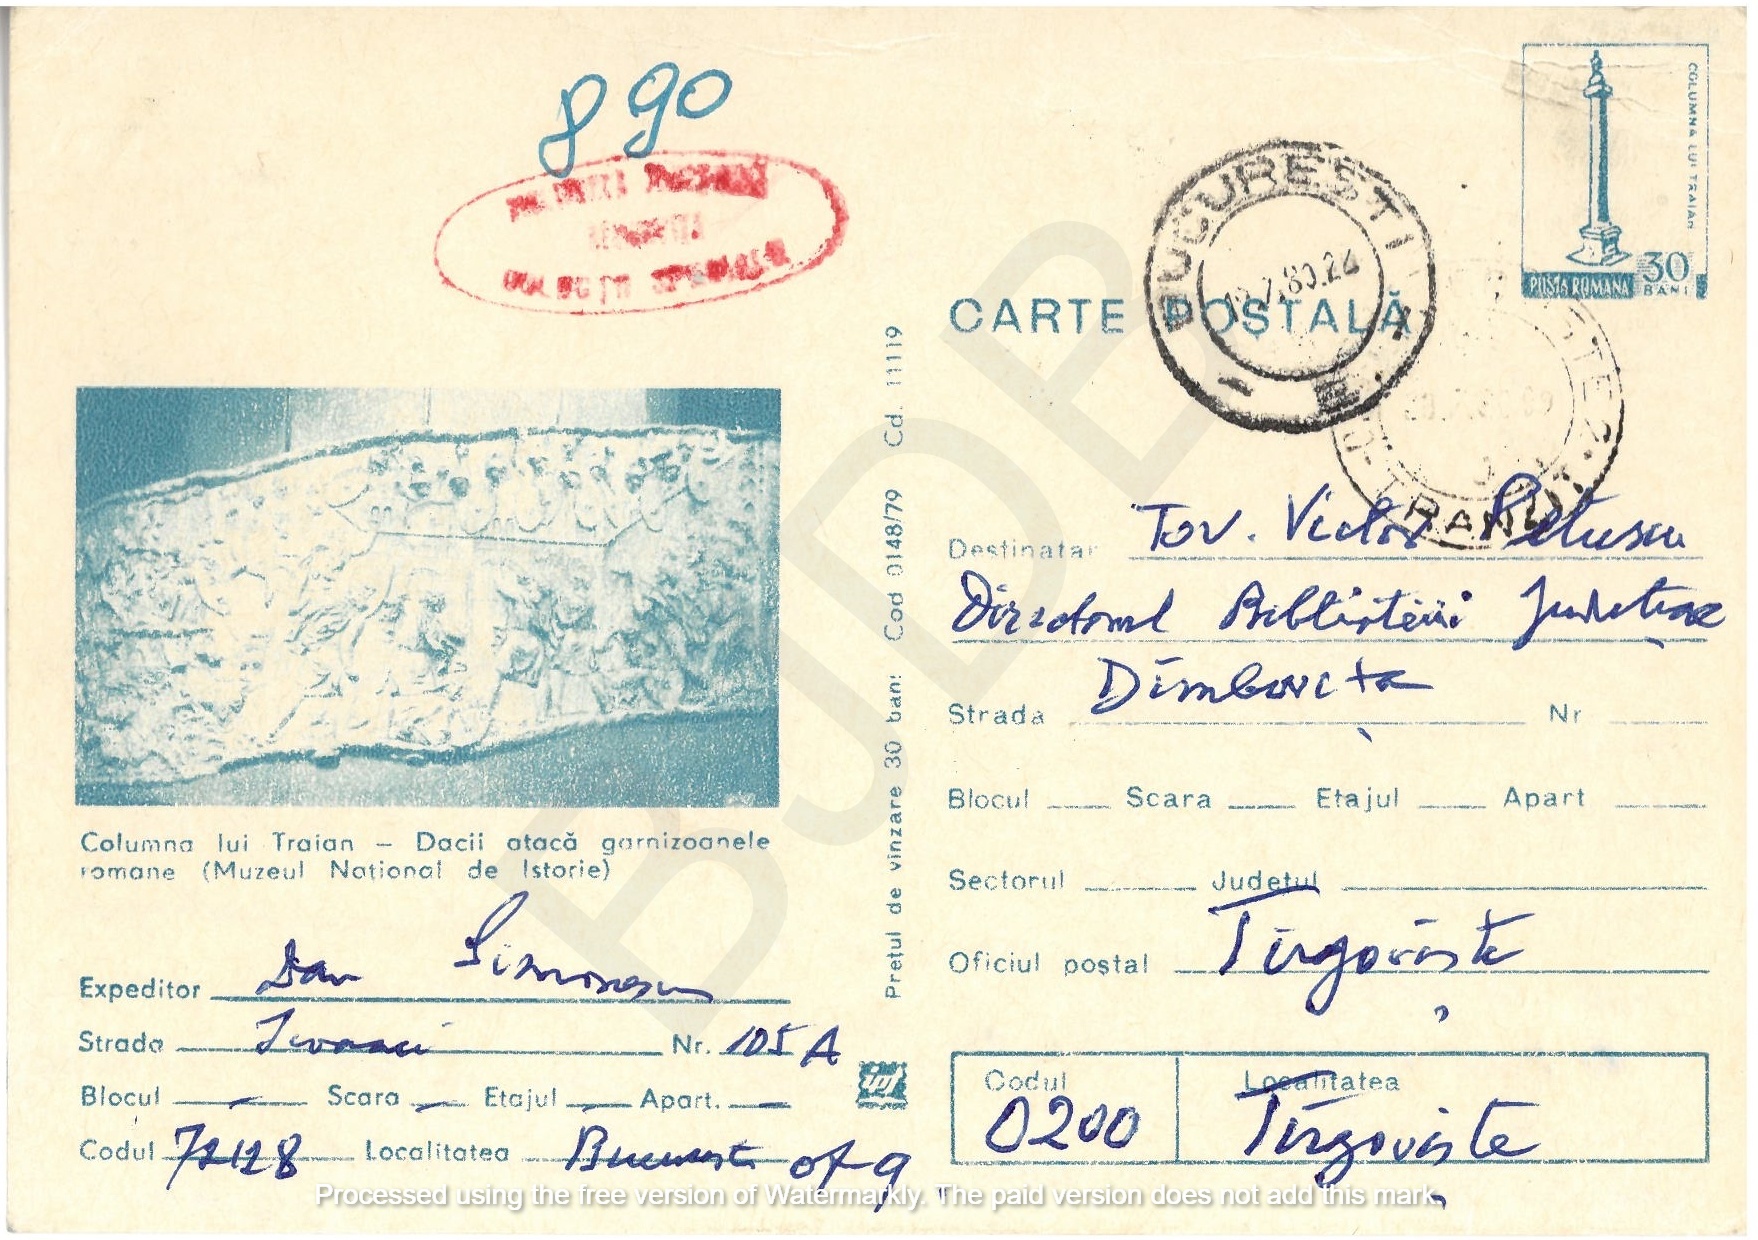 890
COLUMNA LUI TRAIAN
30
BANI
POSTA ROMANA
BUCUREȘTI
CARTE POȘTALĂ
Columna lui Traian – Dacii atacă garnizoanele
romane (Muzeul Național de Istorie)
Expeditor Dan Simonescu
Strada Nr. 105 A
Blocul Scara Etajul Apart.
Codul Localitatea București of 9
Prețul de vînzare 30 bani Cod 0148/79 Cd. 11119
Destinatar Tov. Victor Petrescu
Directorul Bibliotecii Județene
Strada Dîmbovița Nr
Blocul Scara Etajul Apart
Sectorul Județul
Oficiul poștal Tîrgoviște
Codul Localitatea
0200 Tîrgoviște
BJDB
Processed using the free version of Watermarkly. The paid version does not add this mark.